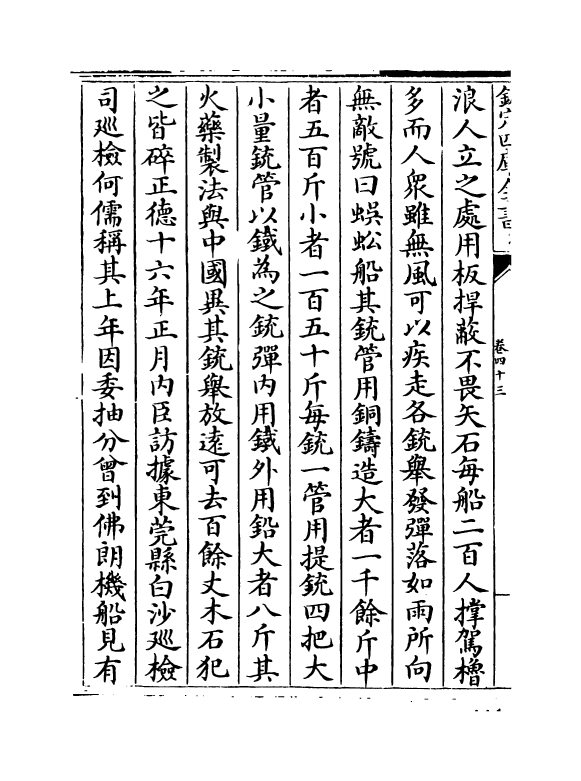 欽定四庫全書
卷四十三
浪人立之處用板捍蔽不畏矢石每船二百人撑駕櫓
多而人衆雖無風可以疾走各銃舉發彈落如雨所向
無敵號曰蜈蚣船其銃管用銅鑄造大者一千餘斤中
者五百斤小者一百五十斤每銃一管用提銃四把大
小量銃管以鐵為之銃彈内用鐵外用鉛大者八斤其
火藥製法與中國異其銃舉放遠可去百餘丈木石犯
之皆碎正德十六年正月内臣訪據東莞縣白沙廵檢
司廵檢何儒稱其上年因委抽分曾到佛朗機船見有